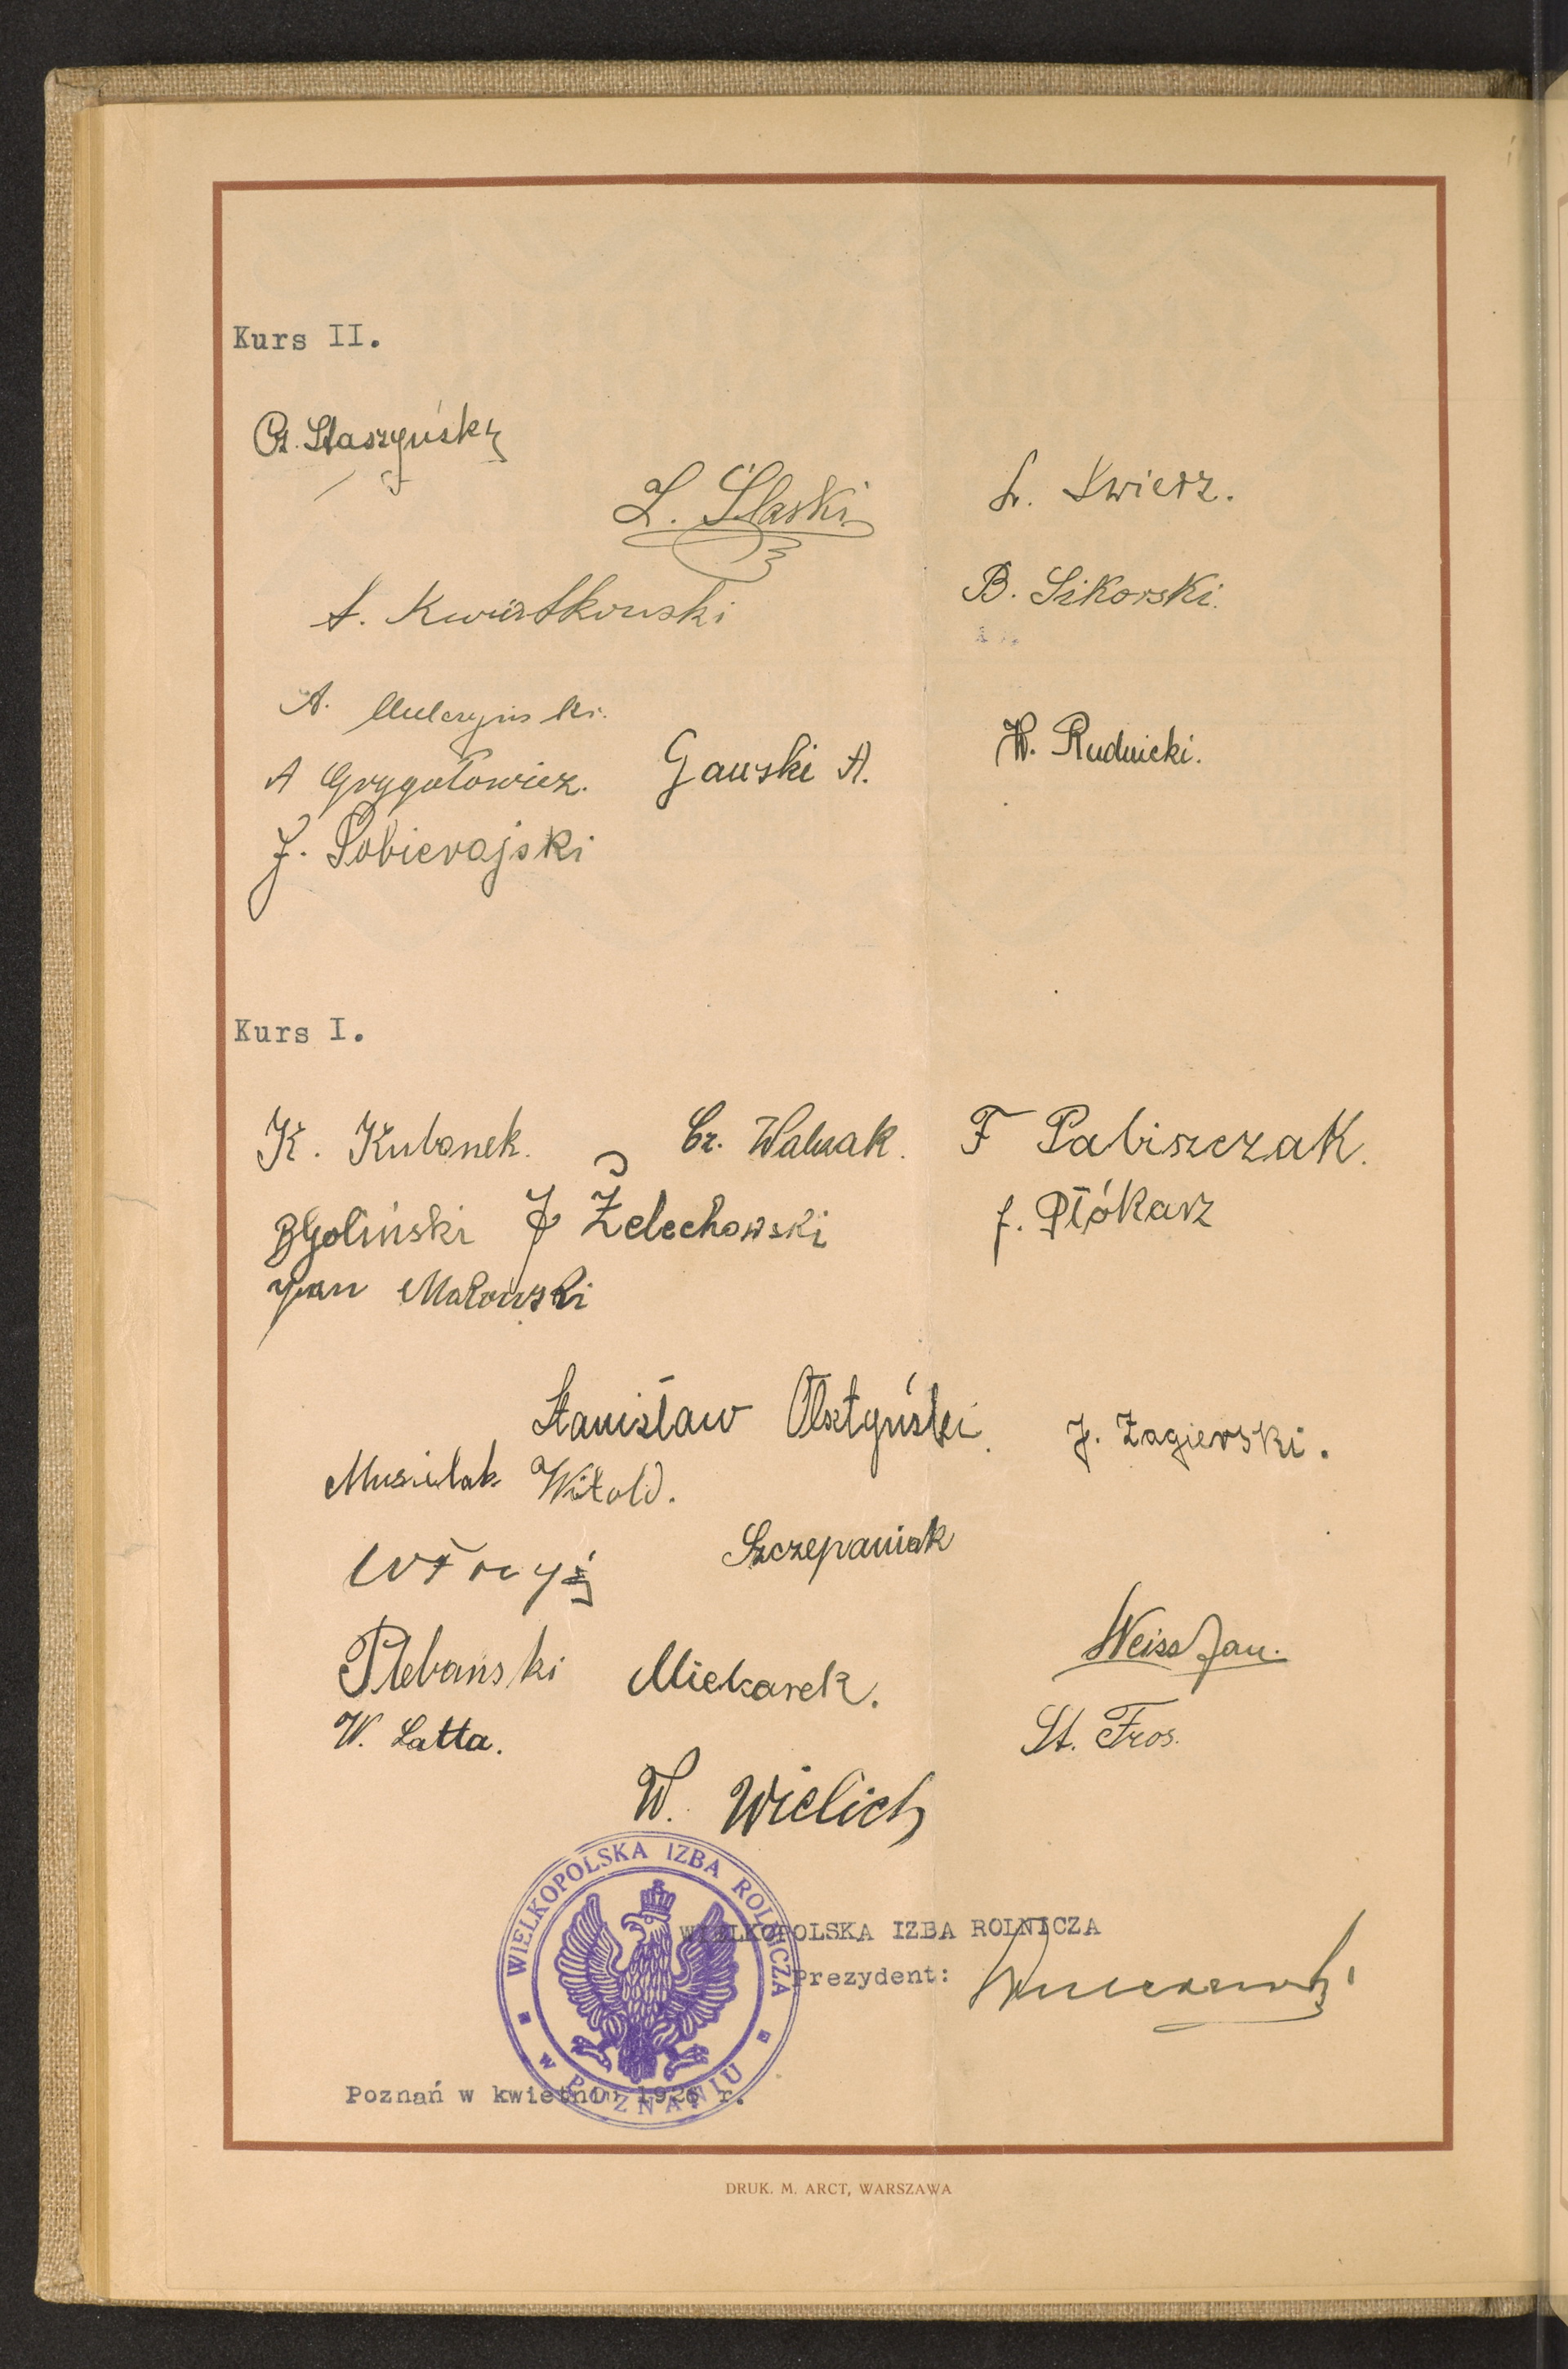 Kurs II.
Cz. Staszyński
L. Slaski
L. Swierz.
A. Kwiatkowski
B. Sikorski.
A.
A Grygołowicz.
Gawski A.
W. Rudnicki.
J. Sobierajski
Kurs I.
K. Kubanek.
Cz. Walczak.
F Pabiszczak.
B Goliński
J Żelechowski
J. Płókarz
Jan Makowski
Stanisław Olsztyński.
J. Zagierski.
Musielak Witold.
Szczepaniak
Plebański
Miekarek.
Weiss Jan.
W. Latta.
St. Fros.
W. Wielich
WIELKOPOLSKA IZBA ROLNICZA
W POZNANIU
WIELKOPOLSKA IZBA ROLNICZA
Prezydent:
Poznań w kwietniu 1926 r.
DRUK. M. ARCT, WARSZAWA